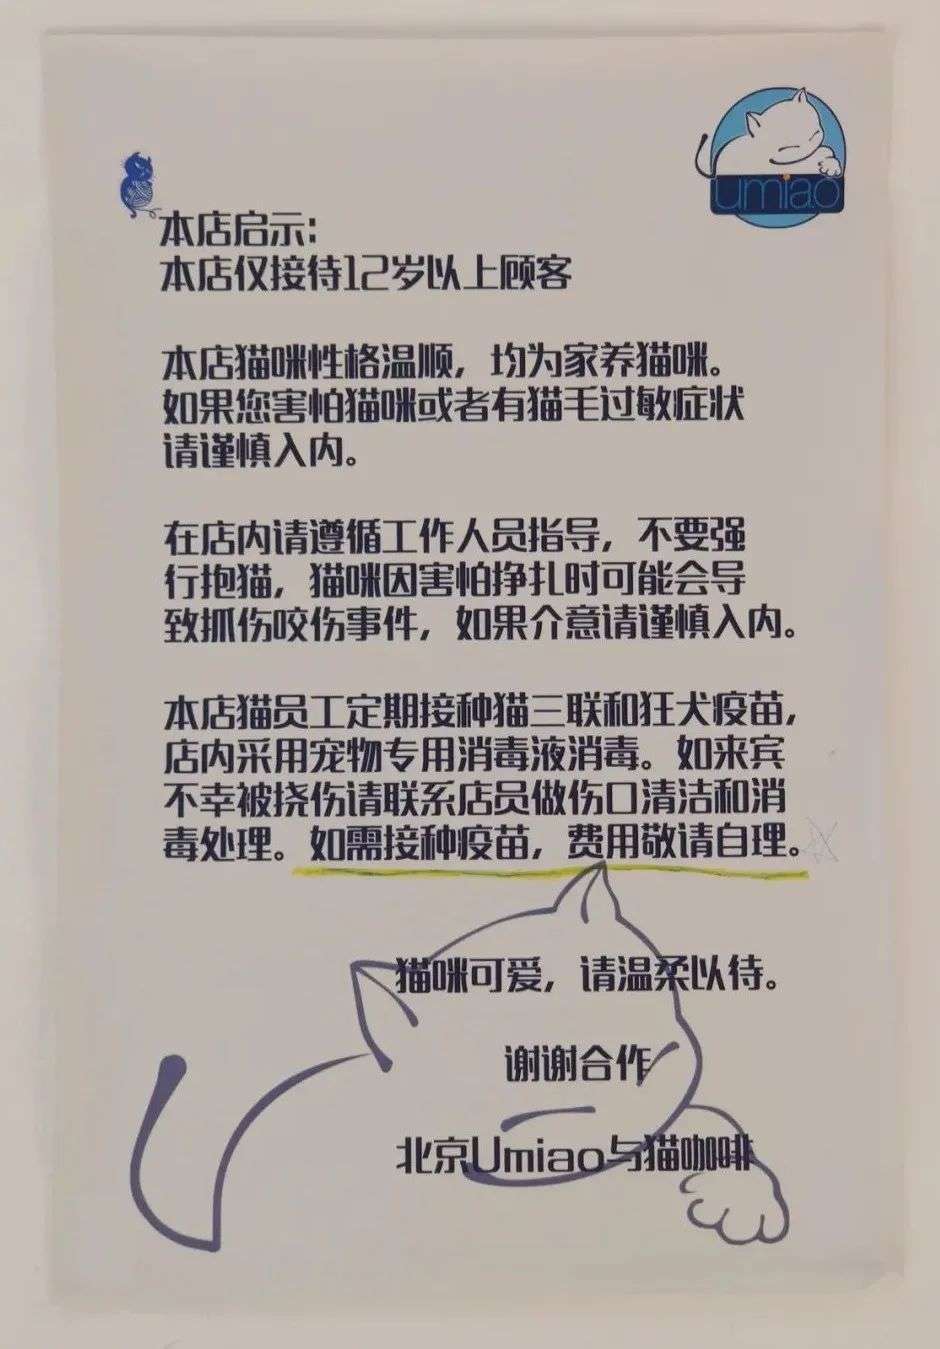 umiao
本店启示：
本店仅接待12岁以上顾客
本店猫咪性格温顺，均为家养猫咪。
如果您害怕猫咪或者有猫毛过敏症状
请谨慎入内。
在店内请遵循工作人员指导，不要强
行抱猫，猫咪因害怕挣扎时可能会导
致抓伤咬伤事件，如果介意请谨慎入内。
本店猫员工定期接种猫三联和狂犬疫苗，
店内采用宠物专用消毒液消毒。如来宾
不幸被挠伤请联系店员做伤口清洁和消
毒处理。如需接种疫苗，费用敬请自理。
猫咪可爱，请温柔以待。
谢谢合作
北京Umiao与猫咖啡